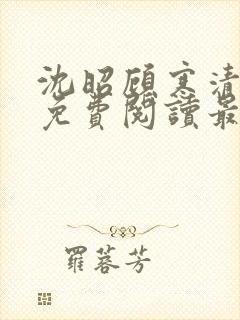 沈昭顾寒清
免費閱讀最
羅蓉芳